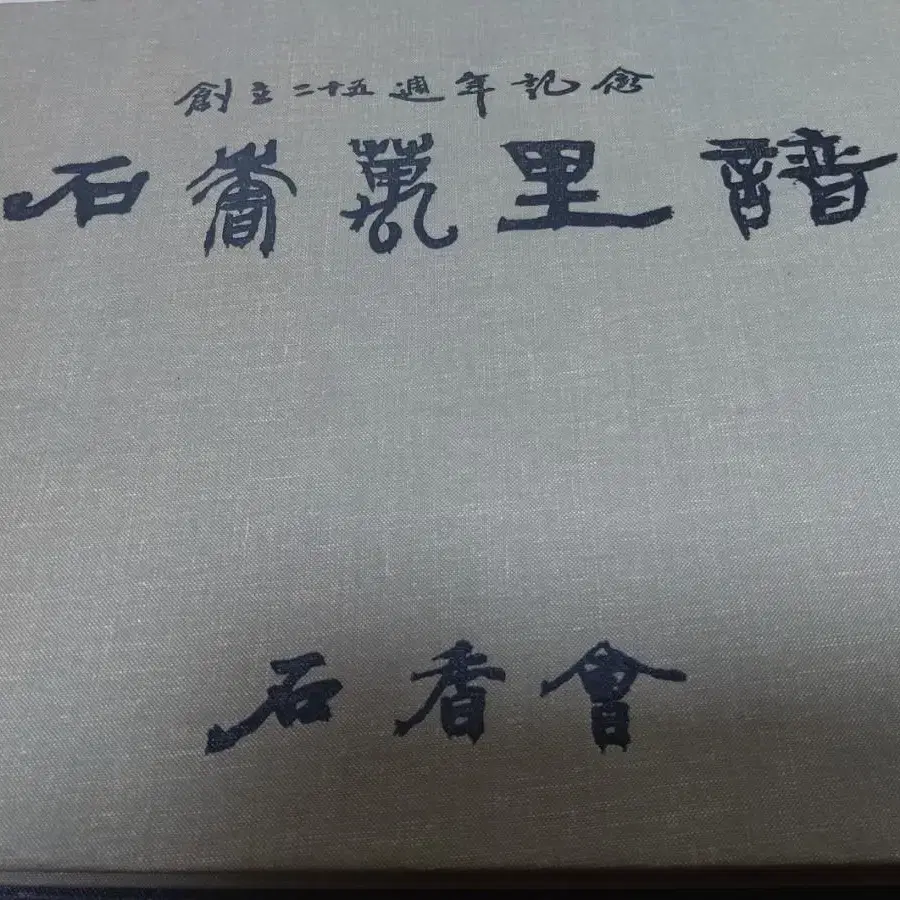 創立二十五週年記念
石香萬里譜
石香會